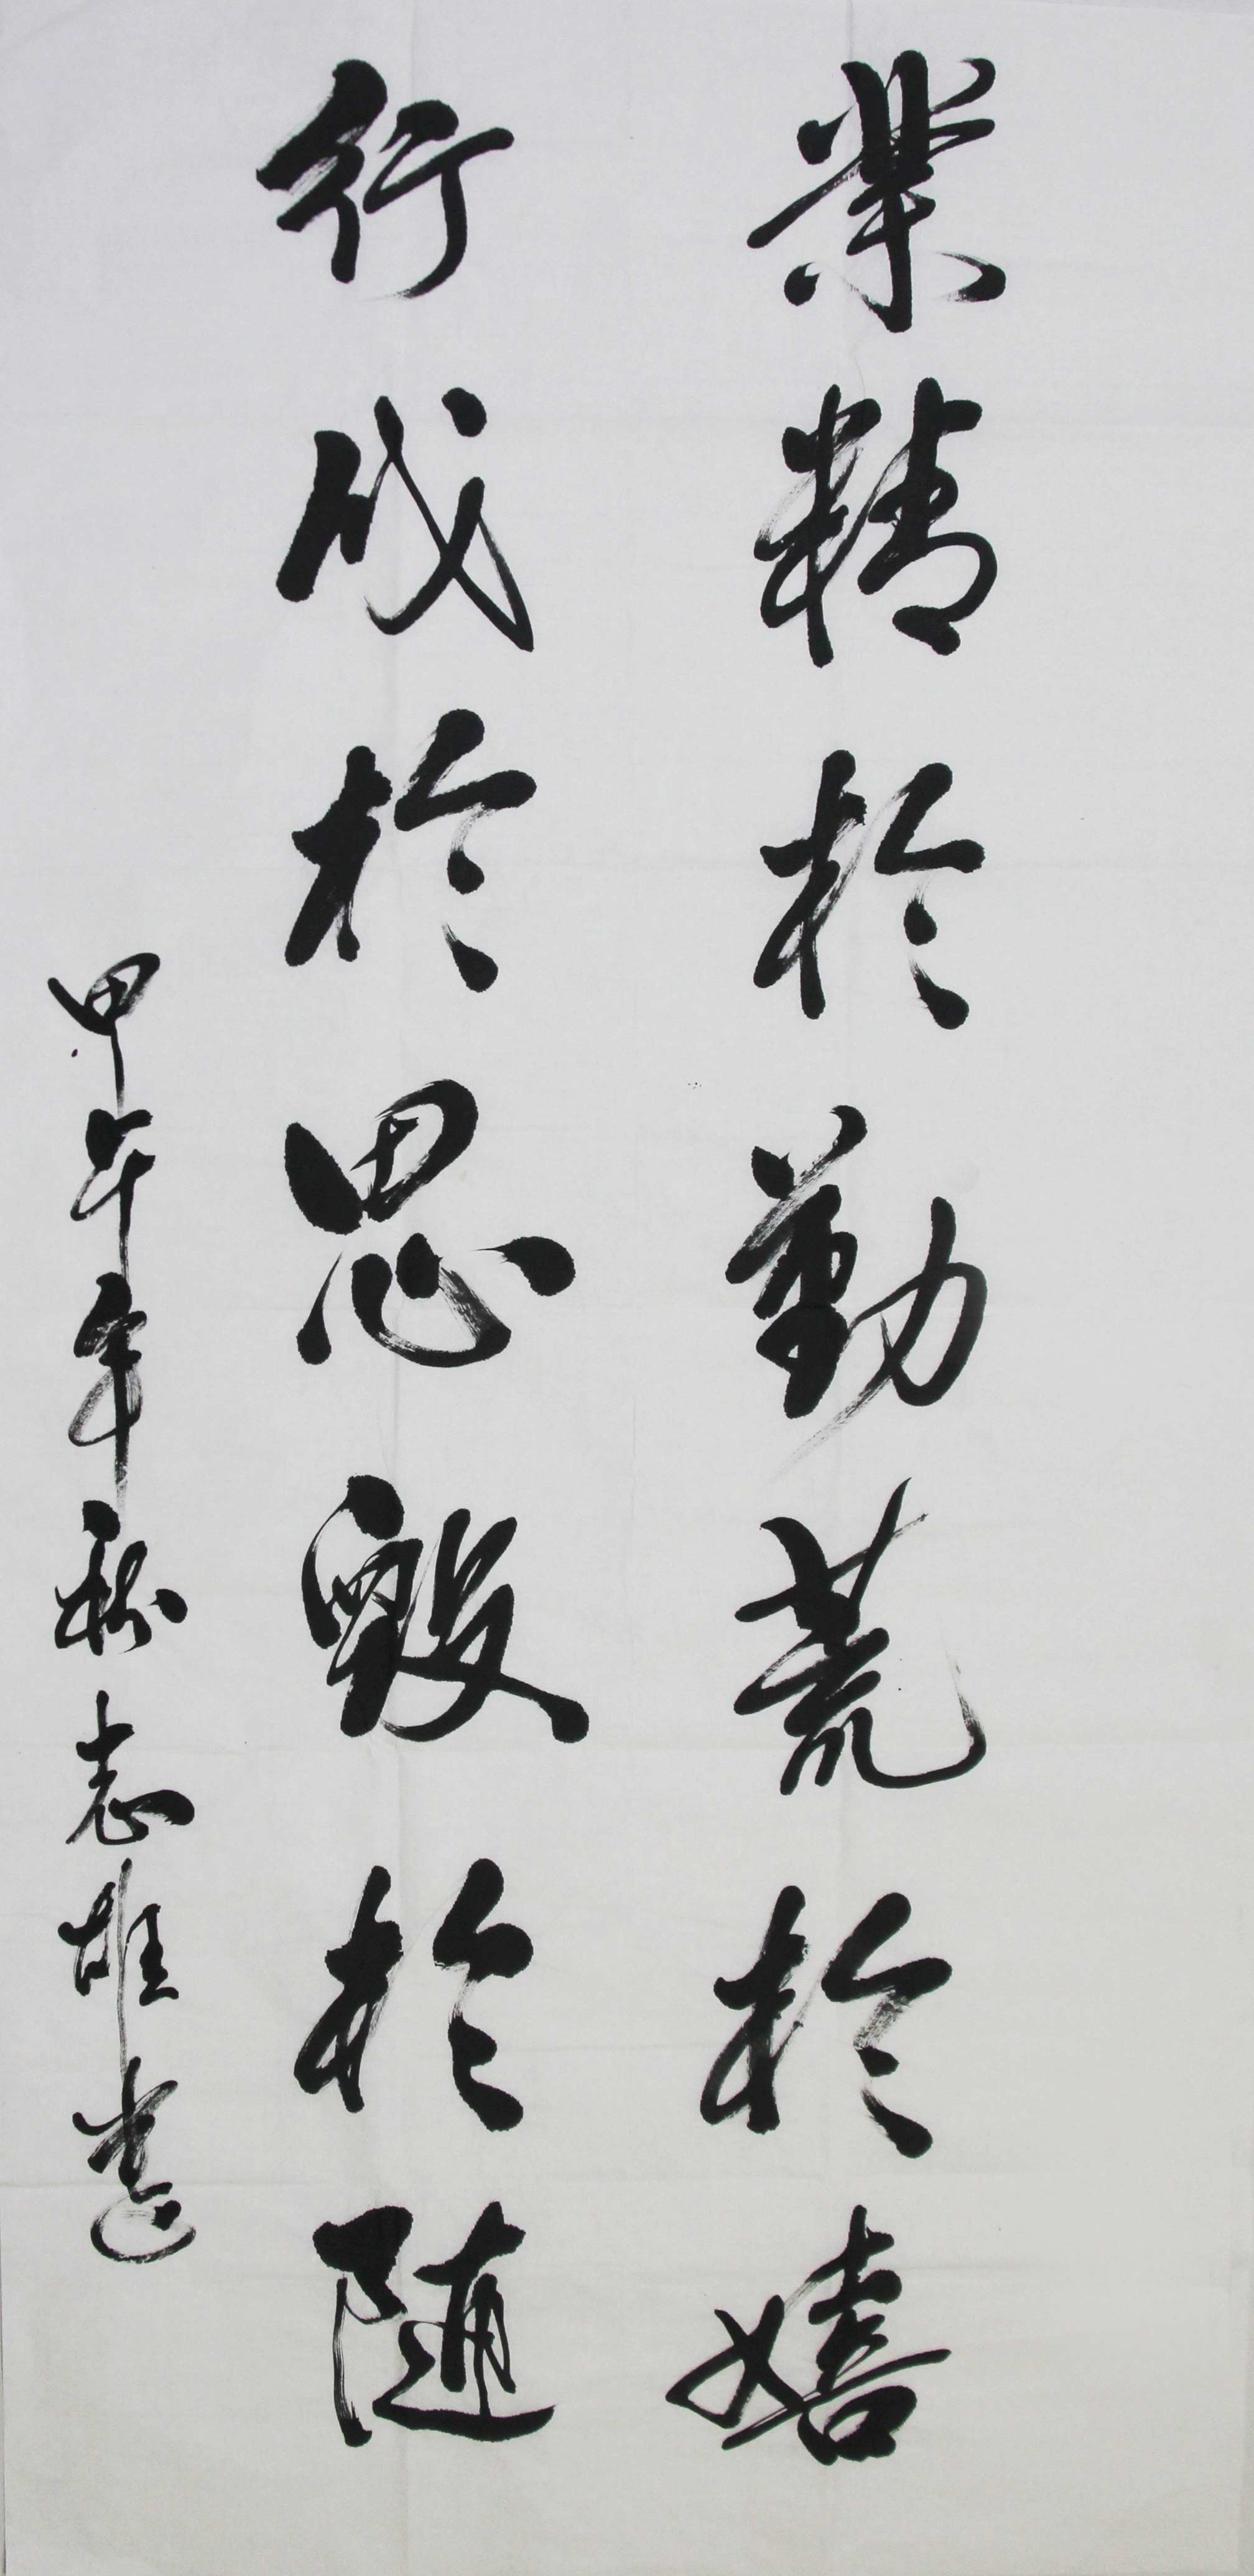 業精於勤荒於嬉
行成於思毀於随
甲午年秋志雄書